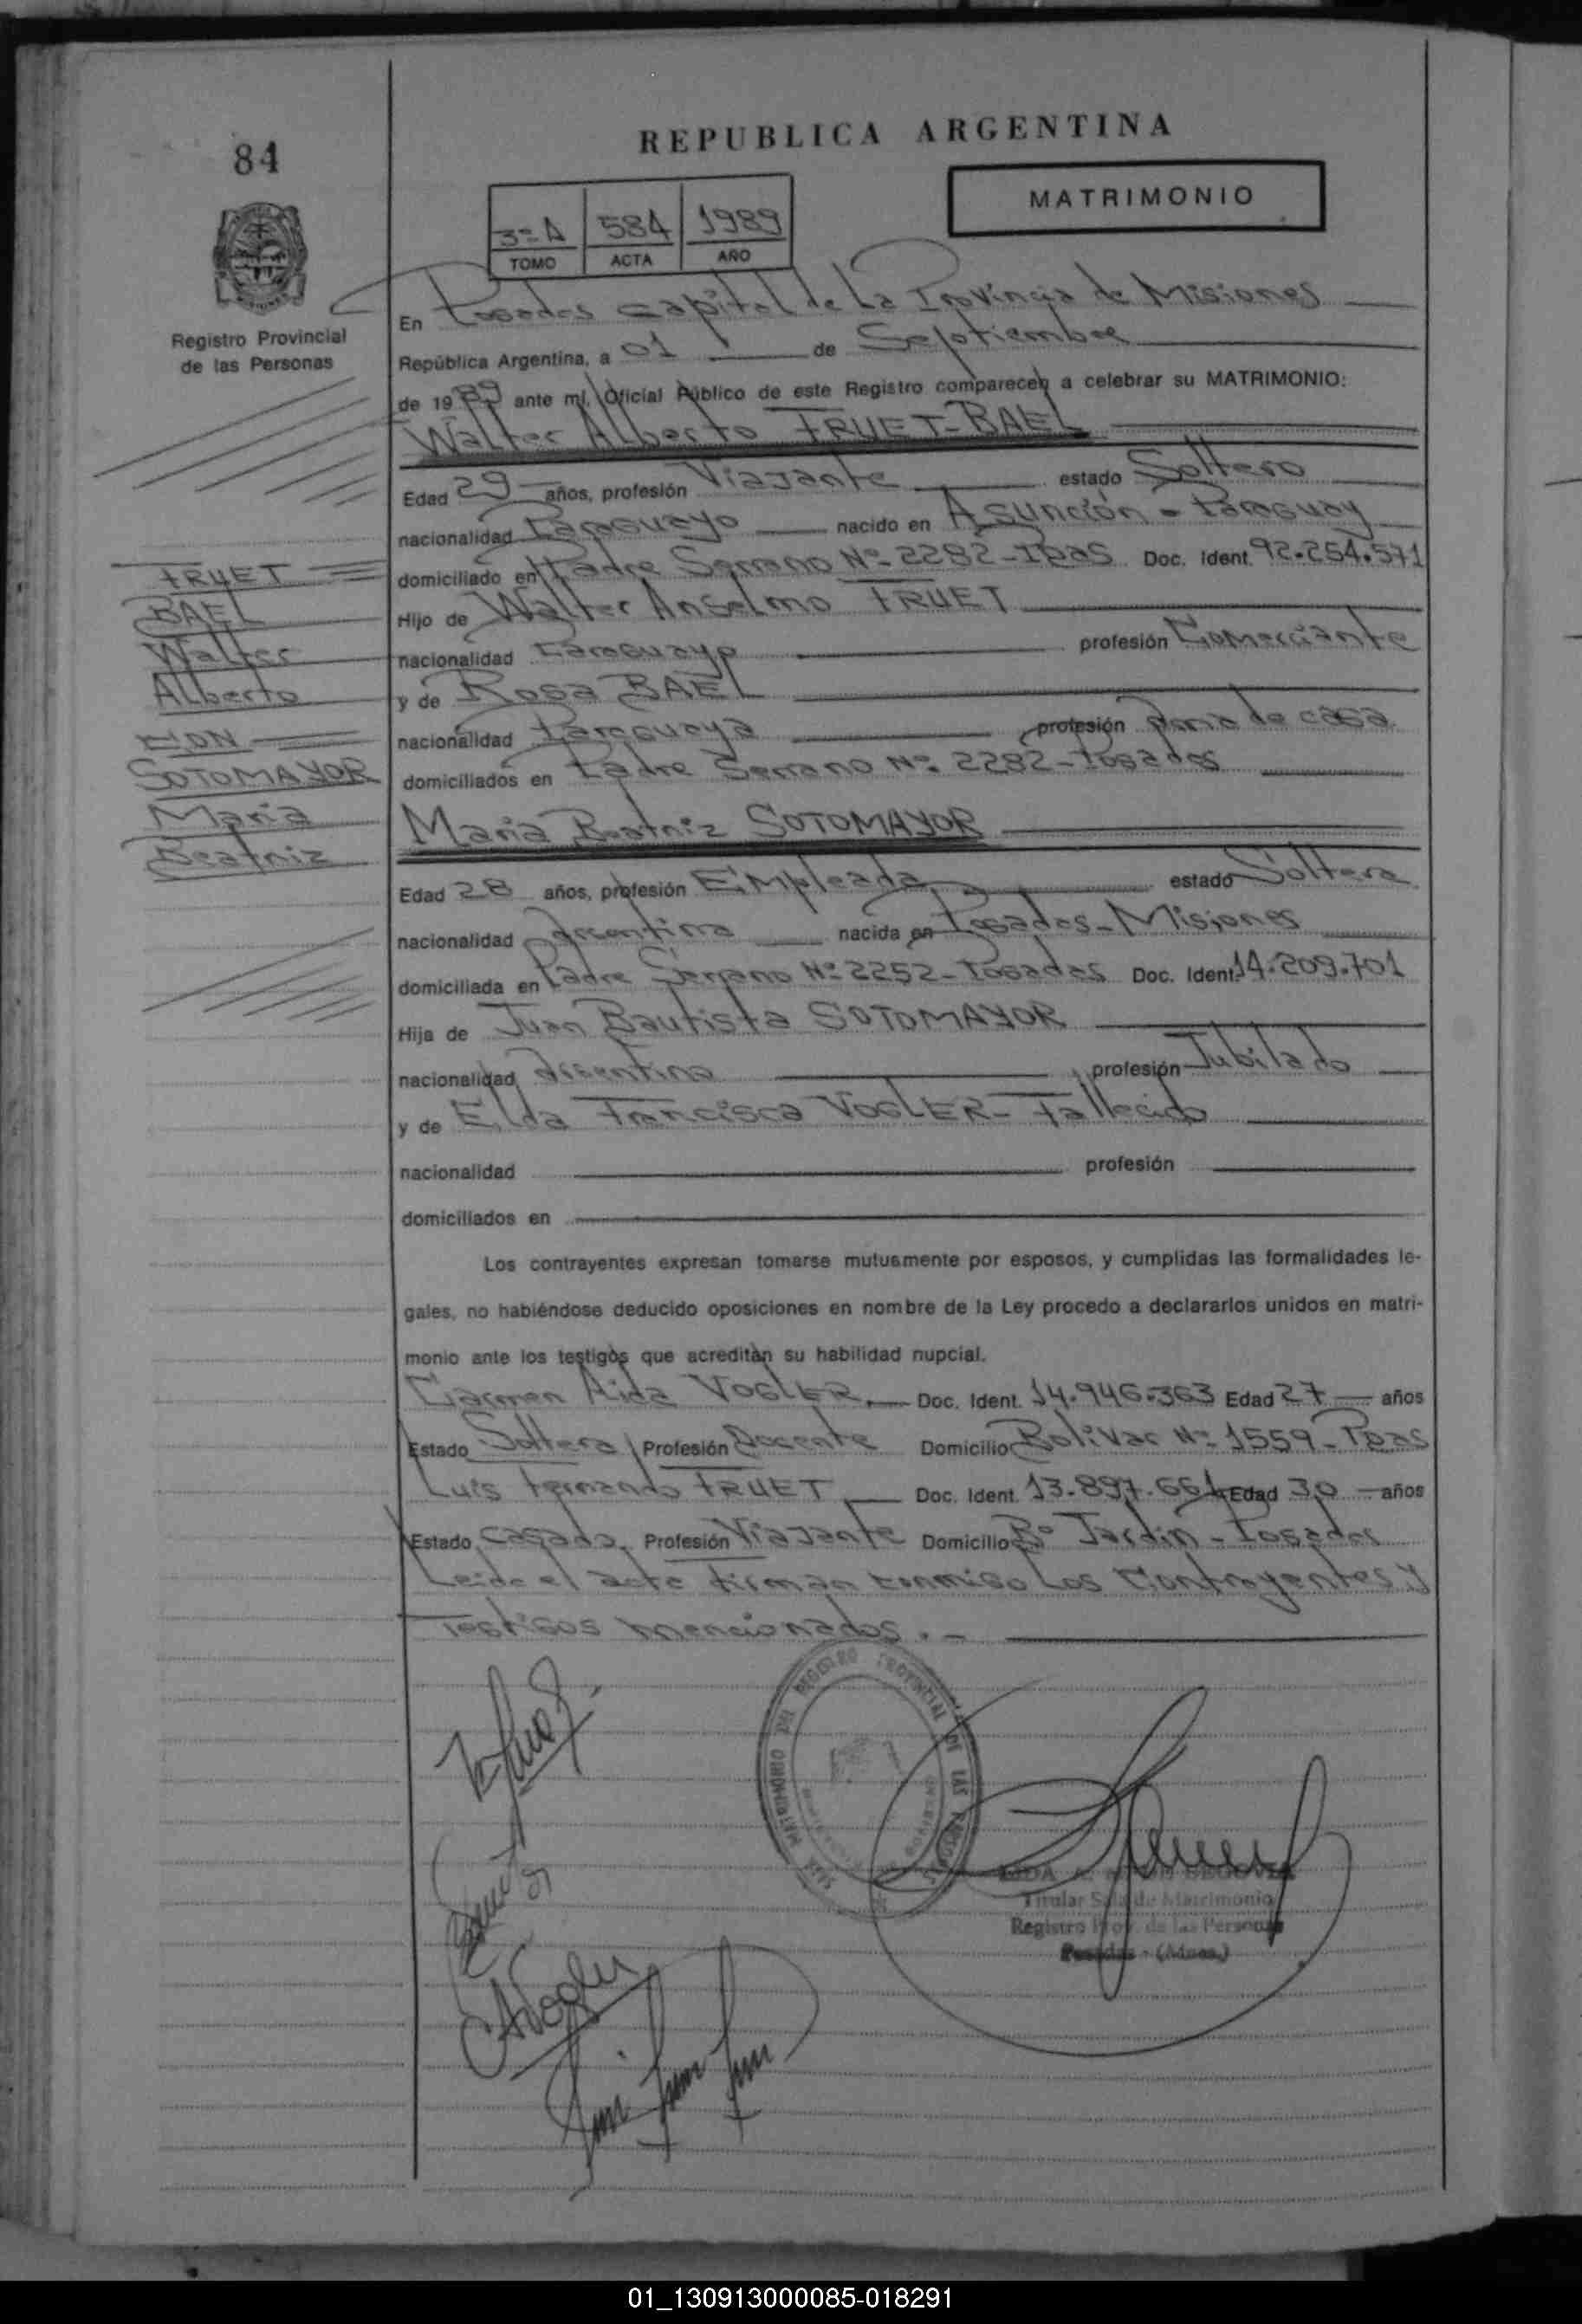 84
REPUBLICA ARGENTINA
MATRIMONIO
3=A 584 1989
TOMO ACTA AÑO
Registro Provincial
de las Personas
En Posadas Capital de La Provincia de Misiones
República Argentina, a 01 de Septiembre
de 1989 ante mí, Oficial Público de este Registro comparecen a celebrar su MATRIMONIO:
Walter Alberto FRUET-BAEL
Edad 29 años, profesión Viajante estado Soltero
nacionalidad Paraguayo nacido en Asunción - Paraguay
domiciliado en Padre Serrano Nº 2282-Pdas Doc. Ident. 92.254.571
Hijo de Walter Anselmo FRUET
nacionalidad Paraguayo profesión Comerciante
y de Rosa BAEL
nacionalidad Paraguaya profesión Ama de casa
domiciliados en Padre Serrano Nº 2282-Posadas
FRUET
BAEL
Walter
Alberto
CON
SOTOMAYOR
Maria
Beatriz
Maria Beatriz SOTOMAYOR
Edad 28 años, profesión Empleada estado Soltera
nacionalidad Argentina nacida en Posadas-Misiones
domiciliada en Padre Serrano Nº 2252-Posadas Doc. Ident. 14.209.701
Hija de Juan Bautista SOTOMAYOR
nacionalidad Argentino profesión Jubilado
y de Elda Francisca VOGLER-Fallecido
nacionalidad profesión
domiciliados en
Los contrayentes expresan tomarse mutuamente por esposos, y cumplidas las formalidades le-
gales, no habiéndose deducido oposiciones en nombre de la Ley procedo a declararlos unidos en matri-
monio ante los testigos que acreditan su habilidad nupcial.
Carmen Aida VOGLER Doc. Ident. 14.946.363 Edad 27 años
Estado Soltera Profesión Docente Domicilio Bolivar Nº 1559-Pdas
Luis Fernando FRUET Doc. Ident. 13.897.661 Edad 30 años
Estado Casado Profesión Viajante Domicilio Bº Jardin-Posadas
Leida el acta firman conmigo Los Contrayentes y
Testigos mencionados.-
REGISTRO PROVINCIAL DE LAS PERSONAS
SALA MATRIMONIO
CAVogler
SEGOVIA
Titular Sala de Matrimonio
Registro Prov. de las Personas
Posadas - (Mnes.)
01_130913000085-018291